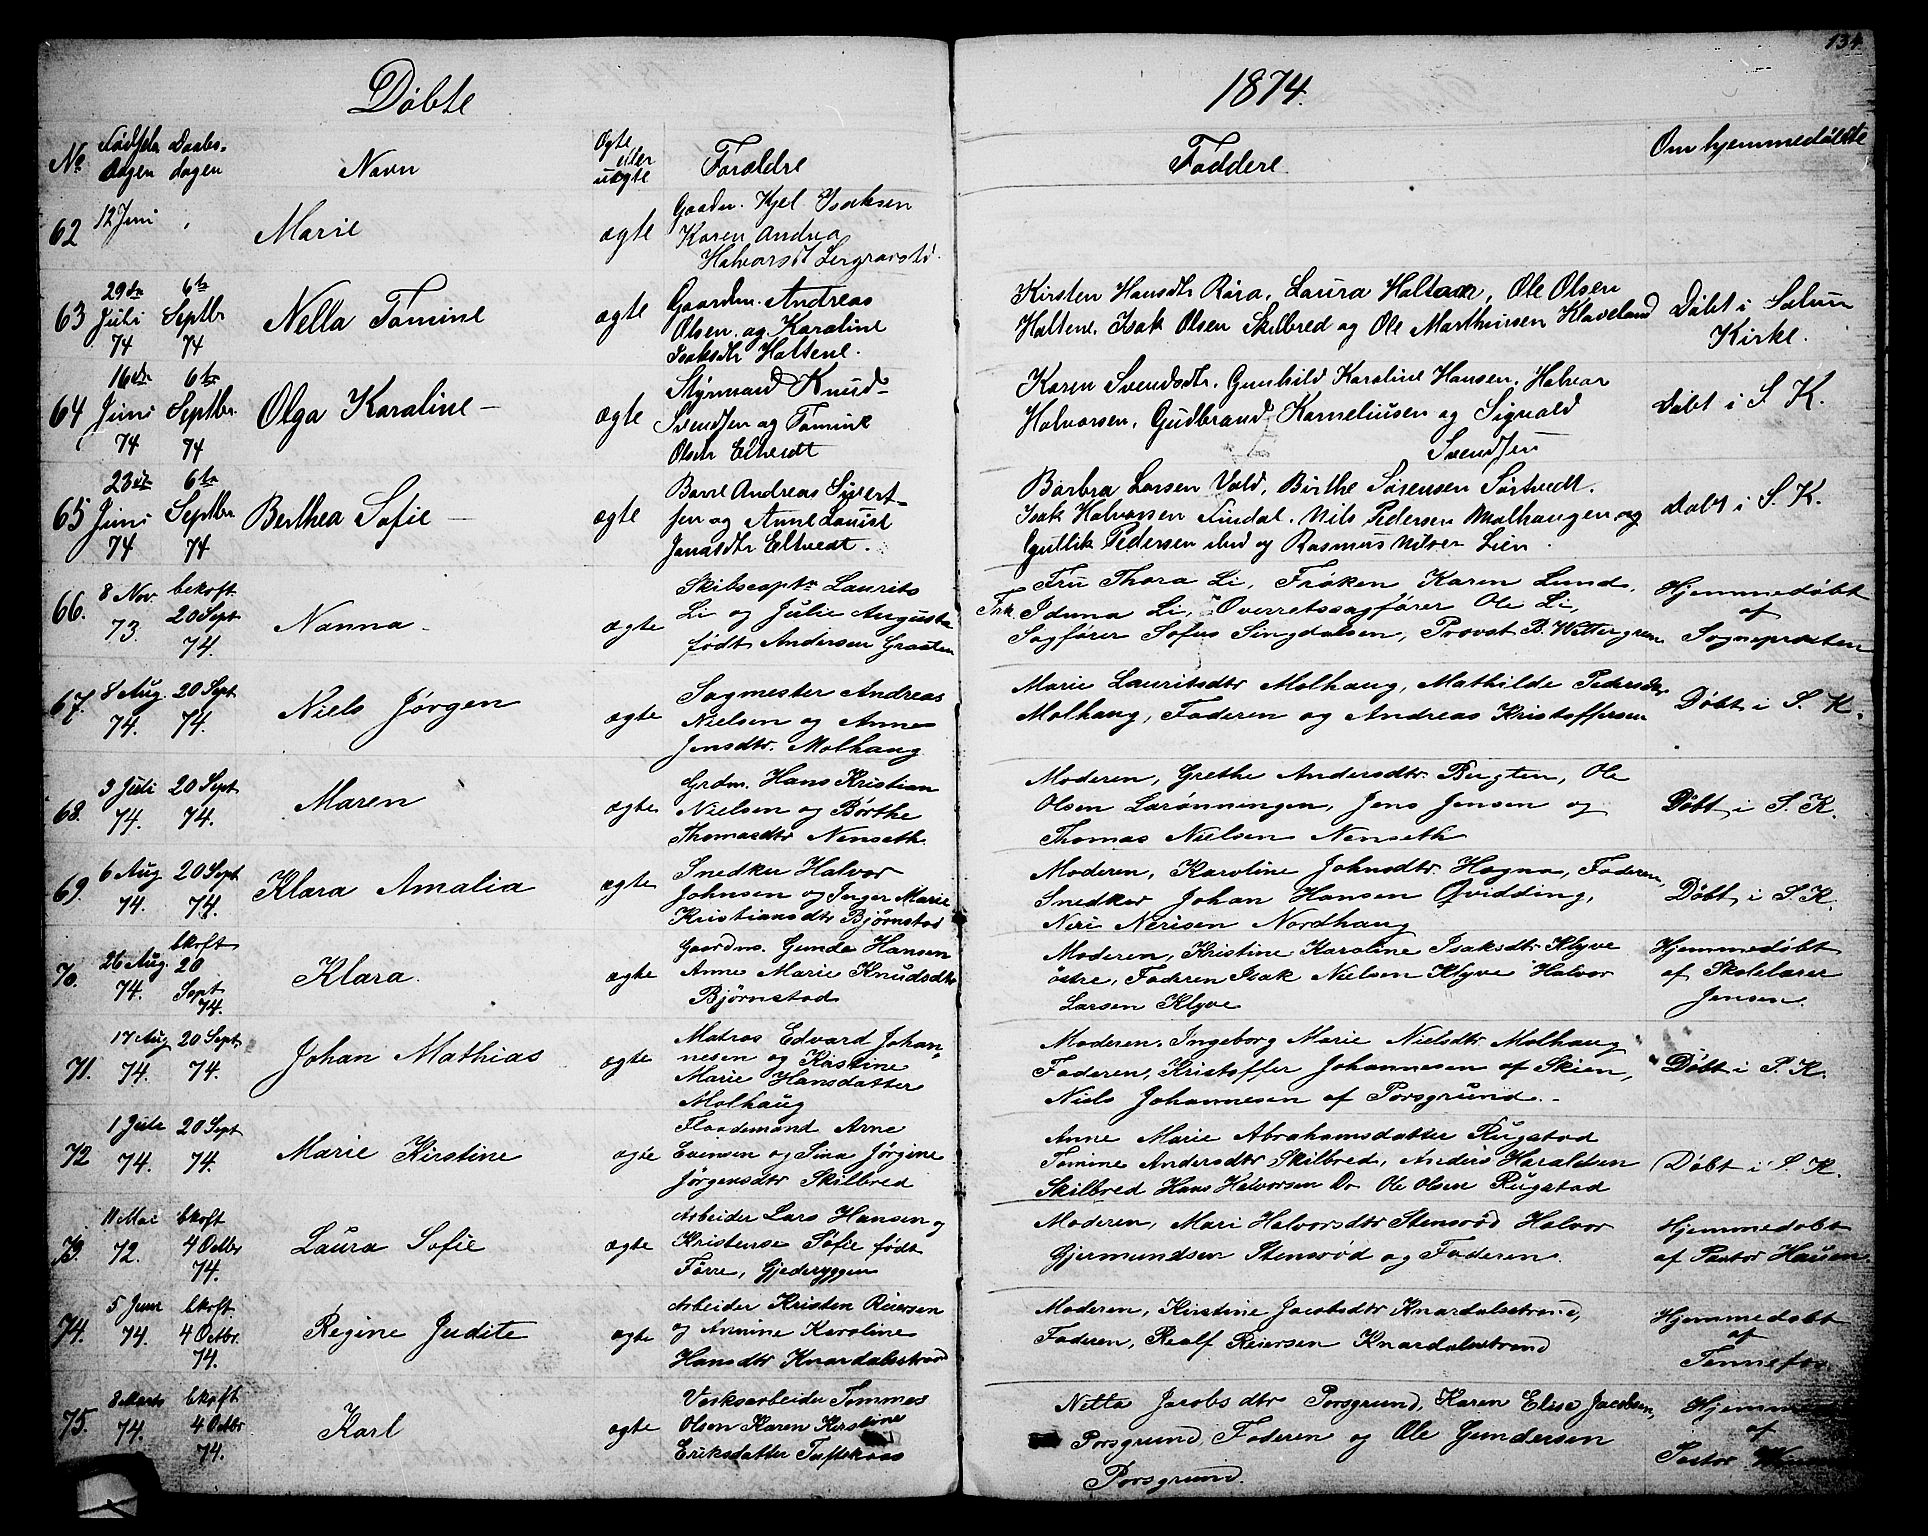 134
Døbte
1874.
No. Fødsels dagen Daabs- dagen Navn Ægte eller uægte Forældre Faddere. Om hjemmedøbte
62 12 Juni Marie ægte Gaardm. Kjel Isaksen
Karen Andrea
Halvorsdt Lergravstd.
63 29de Juli 74 6te Septbr 74 Nella Tomine ægte Gaardm. Andreas
Olsen og Karoline
Isaksdtr Haltene.
Kirsten Hansdtr Røra, Laura Haltane, Ole Olsen
Haltene, Isak Olsen Skilbred og Ole Marthinsen Klaveland
Døbt i Solum
Kirke.
64 16de Juni 74 6te Septbr. 74 Olga Karoline – ægte Styrmand Knud
Svendsen og Tomine
Olsdtr Eltvedt
Karen Svendsdtr. Gunhild Karoline Hansen, Halvor
Halvorsen, Gudbrand Korneliusen og Sigvald
Svendsen
Døbt i S. K.
65 23de Juni 74 6te Septbr 74 Berthea Sofie – ægte Borre Andreas Sivert-
sen og Anne Louise
Jonasdtr Eltvedt.
Barbra Larsen Vold, Birthe Sørensen Sørtvedt.
Isak Halvorsen Lindal. Nils Pedersen Molhaugen og
Gullik Pedersen ibid og Rasmus Nilsen Lien.
døbt i S. K.
66. 8 Nov. 73. bekræft 20 Sept 74. Nanna – ægte Skibscaptn Laurits
Li og Julie Augusta
født Andersen Graaten
Fru Thora Li, Frøken Karen Lund,
Frk. Iduna Li, Overretssagfører Ole Li,
Sagfører Sofus Singdalsen, Provst B. Wettergreen
Hjemmedøbt
af
Sognepræsten
67. 8 Aug. 74. 20 Sept 74. Niels Jørgen ægte Sagmester Andreas
Nielsen og Anne
Jensdtr. Molhaug
Marie Lauritsdtr Molhaug, Mathilde Pedersdtr
Molhaug, Faderen og Andreas Kristoffersen
Døbt i S. K.
68. 3 Juli 74. 20 Sept 74. Maren ægte Grdm. Hans Kristian
Nielsen og Børthe
Thomasdtr Nenseth.
Moderen, Grethe Andersdtr Bugten, Ole
Olsen Larønningen, Jens Jensen og
Thomas Nielsen Nenseth
Døbt i S. K.
69. 6 Aug 74. 20 Sept 74. Klara Amalia ægte Snedker Halvor
Johnsen og Inger Marie
Kristiansdtr Bjørnstad
Moderen, Karoline Johnsdtr Hogna, Faderen,
Snedker Johan Hansen Qvidding,
Neri Nerisen Nordhaug
Døbt i S. K.
70. 26 Aug. 74. bkrft 20 Sept 74. Klara. ægte Gaardm. Gunde Hansen
Anne Marie Knudsdtr
Bjørnstad
Moderen, Kristine Karoline Isaksdtr Klyve
østre, Faderen Isak Nielsen Klyve Halvor
Larsen Klyve
Hjemmedøbt
af Skolelærer
Jensen.
71. 17 Aug 74. 20 Sept. 74. Johan Mathias ægte Matros Edvard Johan-
nesen og Kristine
Marie Hansdatter
Molhaug
Moderen. Ingeborg Marie Nielsdtr Molhaug
Faderen, Kristoffer Johannesen af Skien,
Niels Johannesen af Porsgrund. –
Døbt i S. K.
72 1 Jule 74. 20 Sept 74. Marie Kirstine ægte Flaademand Arne
Evensen og Sina Jørgine
Jørgensdtr Skilbred
Anne Marie Abrahamsdatter Rugstad
Tomine Andersdtr Skilbred, Anders Haraldsen
Skilbred Hans Halvorsen Do Ole Olsen Rugstad
Døbt i S. K.
73. 11 Mai 72. bkrft 4 Octbr 74. Laura Sofie ægte Arbeider Lars Hansen og
Kristense Sofie født
Førre, Gjederyggen
Moderen, Mari Halvorsdtr Stensrød Halvor
Gjermundsen Stensrød og Faderen.
Hjemmedøbt
af Pastor Hansen.
74. 5 Juni 74. bkrft. 4 Octbr. 74. Regine Judite ægte Arbeider Kristen Reiersen
og Annine Karoline
Hansdtr Knardalsstrand
Moderen, Kirstine Jacobsdtr Knardalsstrand,
Faderen, Realf Reiersen Knardalsstrand
Hjemmedøbt
af
75. 8 Marts 74. bkrft 4 Octbr 74. Karl ægte Verksarbeider Tommas
Olsen Karen Kirstine
Eriksdatter Tuftekaas
Netta Jacobsdtr Porsgrund, Karen Elise Jacobsen,
Porsgrund, Faderen og Ole Gundersen
Porsgrund.
af
Pastor